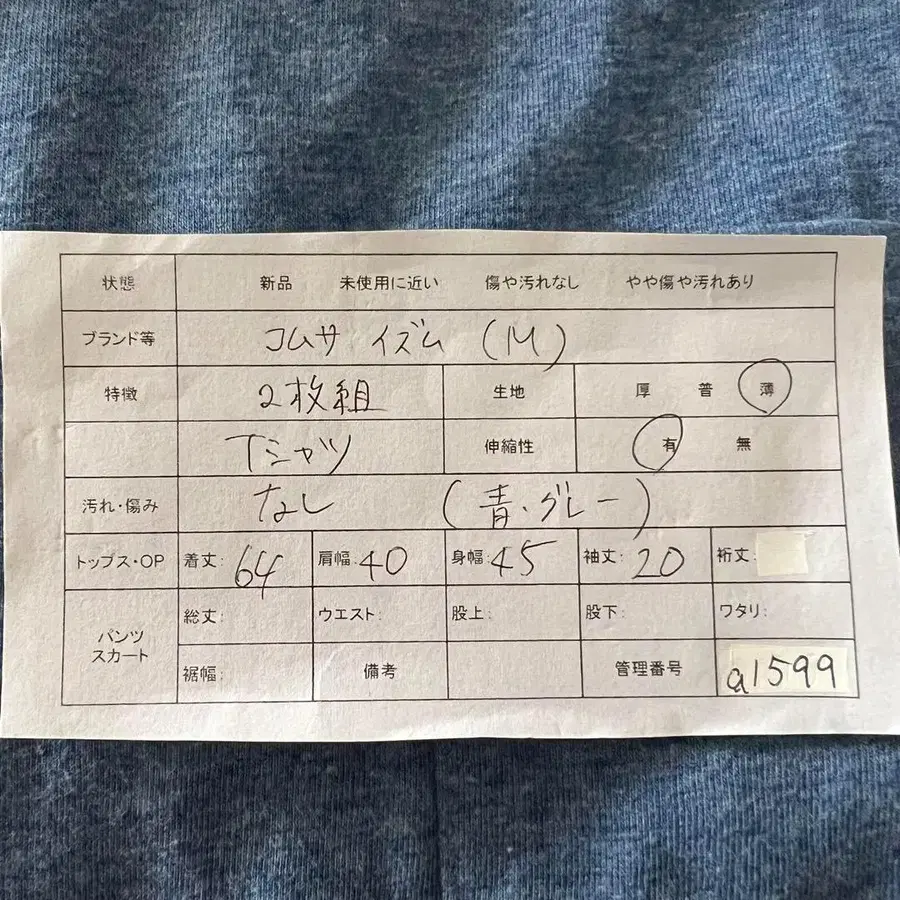 状態 新品 未使用に近い 傷や汚れなし やや傷や汚れあり
ブランド等 コムサイズム (M)
特徴 2枚組 生地 厚 普 薄
Tシャツ 伸縮性 有 無
汚れ・傷み なし (青・グレー)
トップス・OP 着丈: 64 肩幅: 40 身幅: 45 袖丈: 20 裄丈:
パンツ スカート 総丈: ウエスト: 股上: 股下: ワタリ:
裾幅: 備考 管理番号 a1599